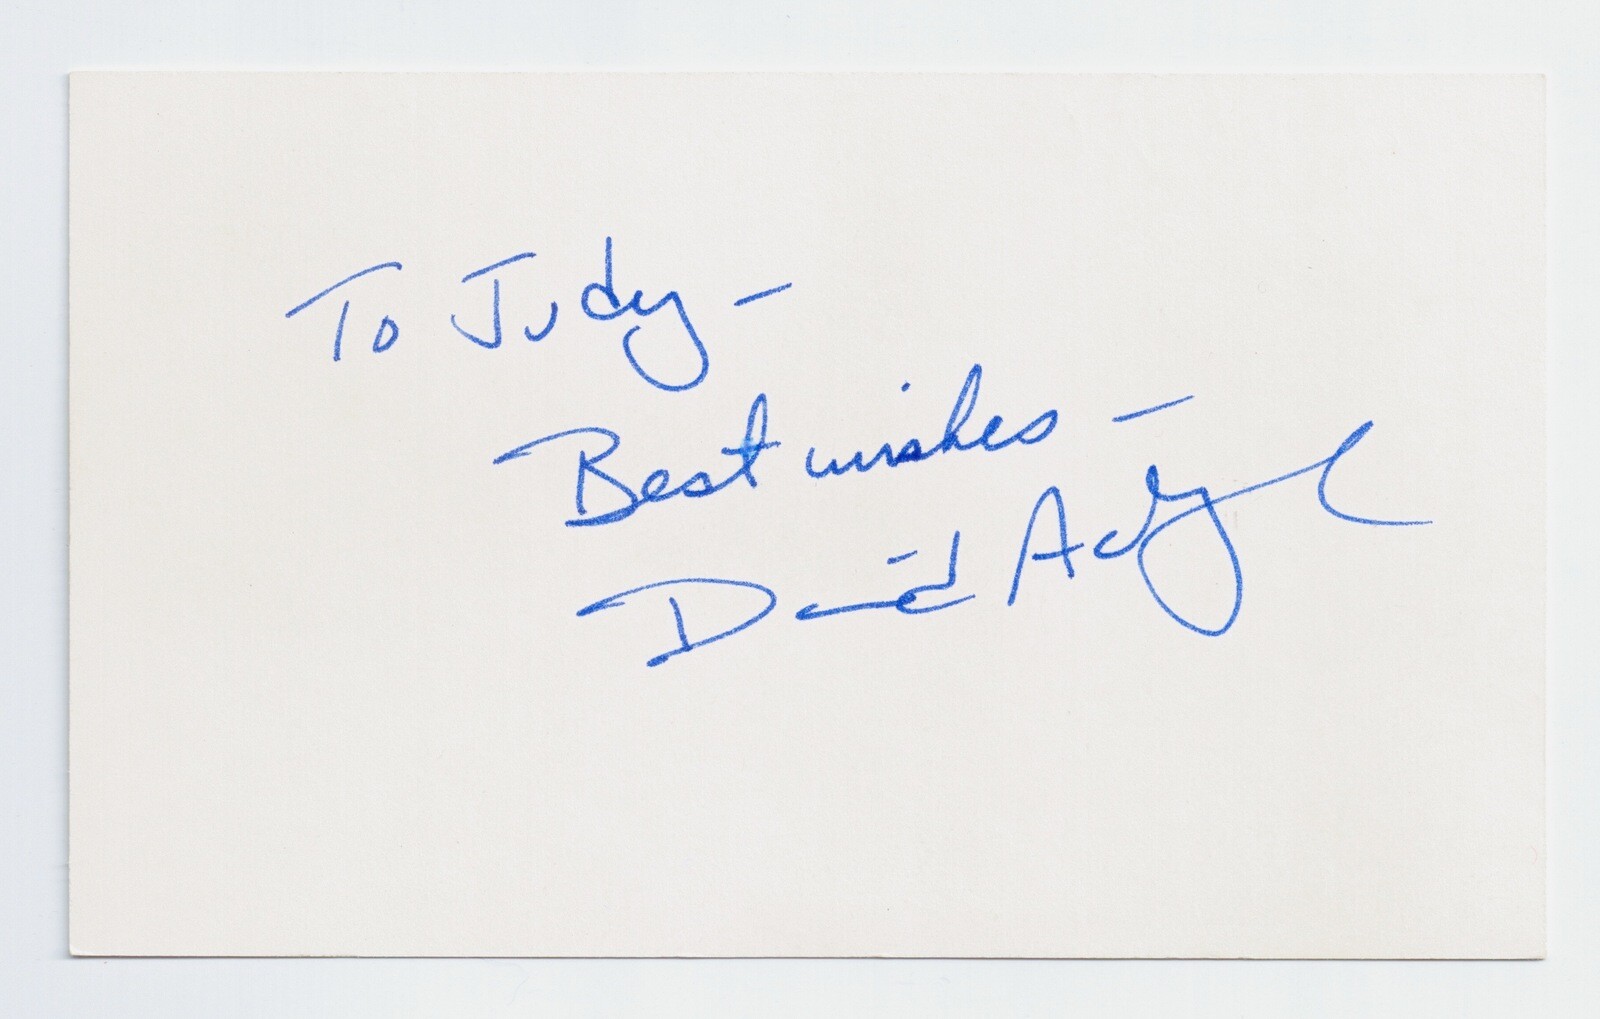 To Judy -
Best wishes -
David